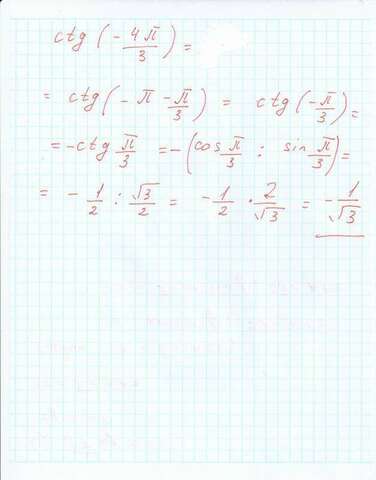 ctg (- 4π/3) =
= ctg (- π - π/3) = ctg (- π/3) =
= - ctg π/3 = - (cos π/3 : sin π/3) =
= - 1/2 : √3/2 = - 1/2 · 2/√3 = - 1/√3